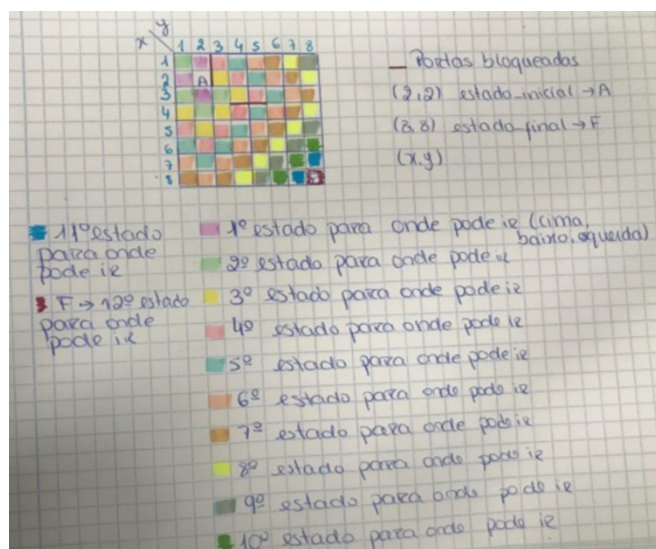 y
x
1 2 3 4 5 6 7 8
1
2 A
3
4
5
6
7
8
Portas bloqueadas
(2,2) estado inicial → A
(8,8) estado final → F
(x,y)
11º estado
para onde
pode ir
F → 12º estado
para onde
pode ir
1º estado para onde pode ir (cima,
baixo, esquerda)
2º estado para onde pode ir
3º estado para onde pode ir
4º estado para onde pode ir
5º estado para onde pode ir
6º estado para onde pode ir
7º estado para onde pode ir
8º estado para onde pode ir
9º estado para onde pode ir
10º estado para onde pode ir